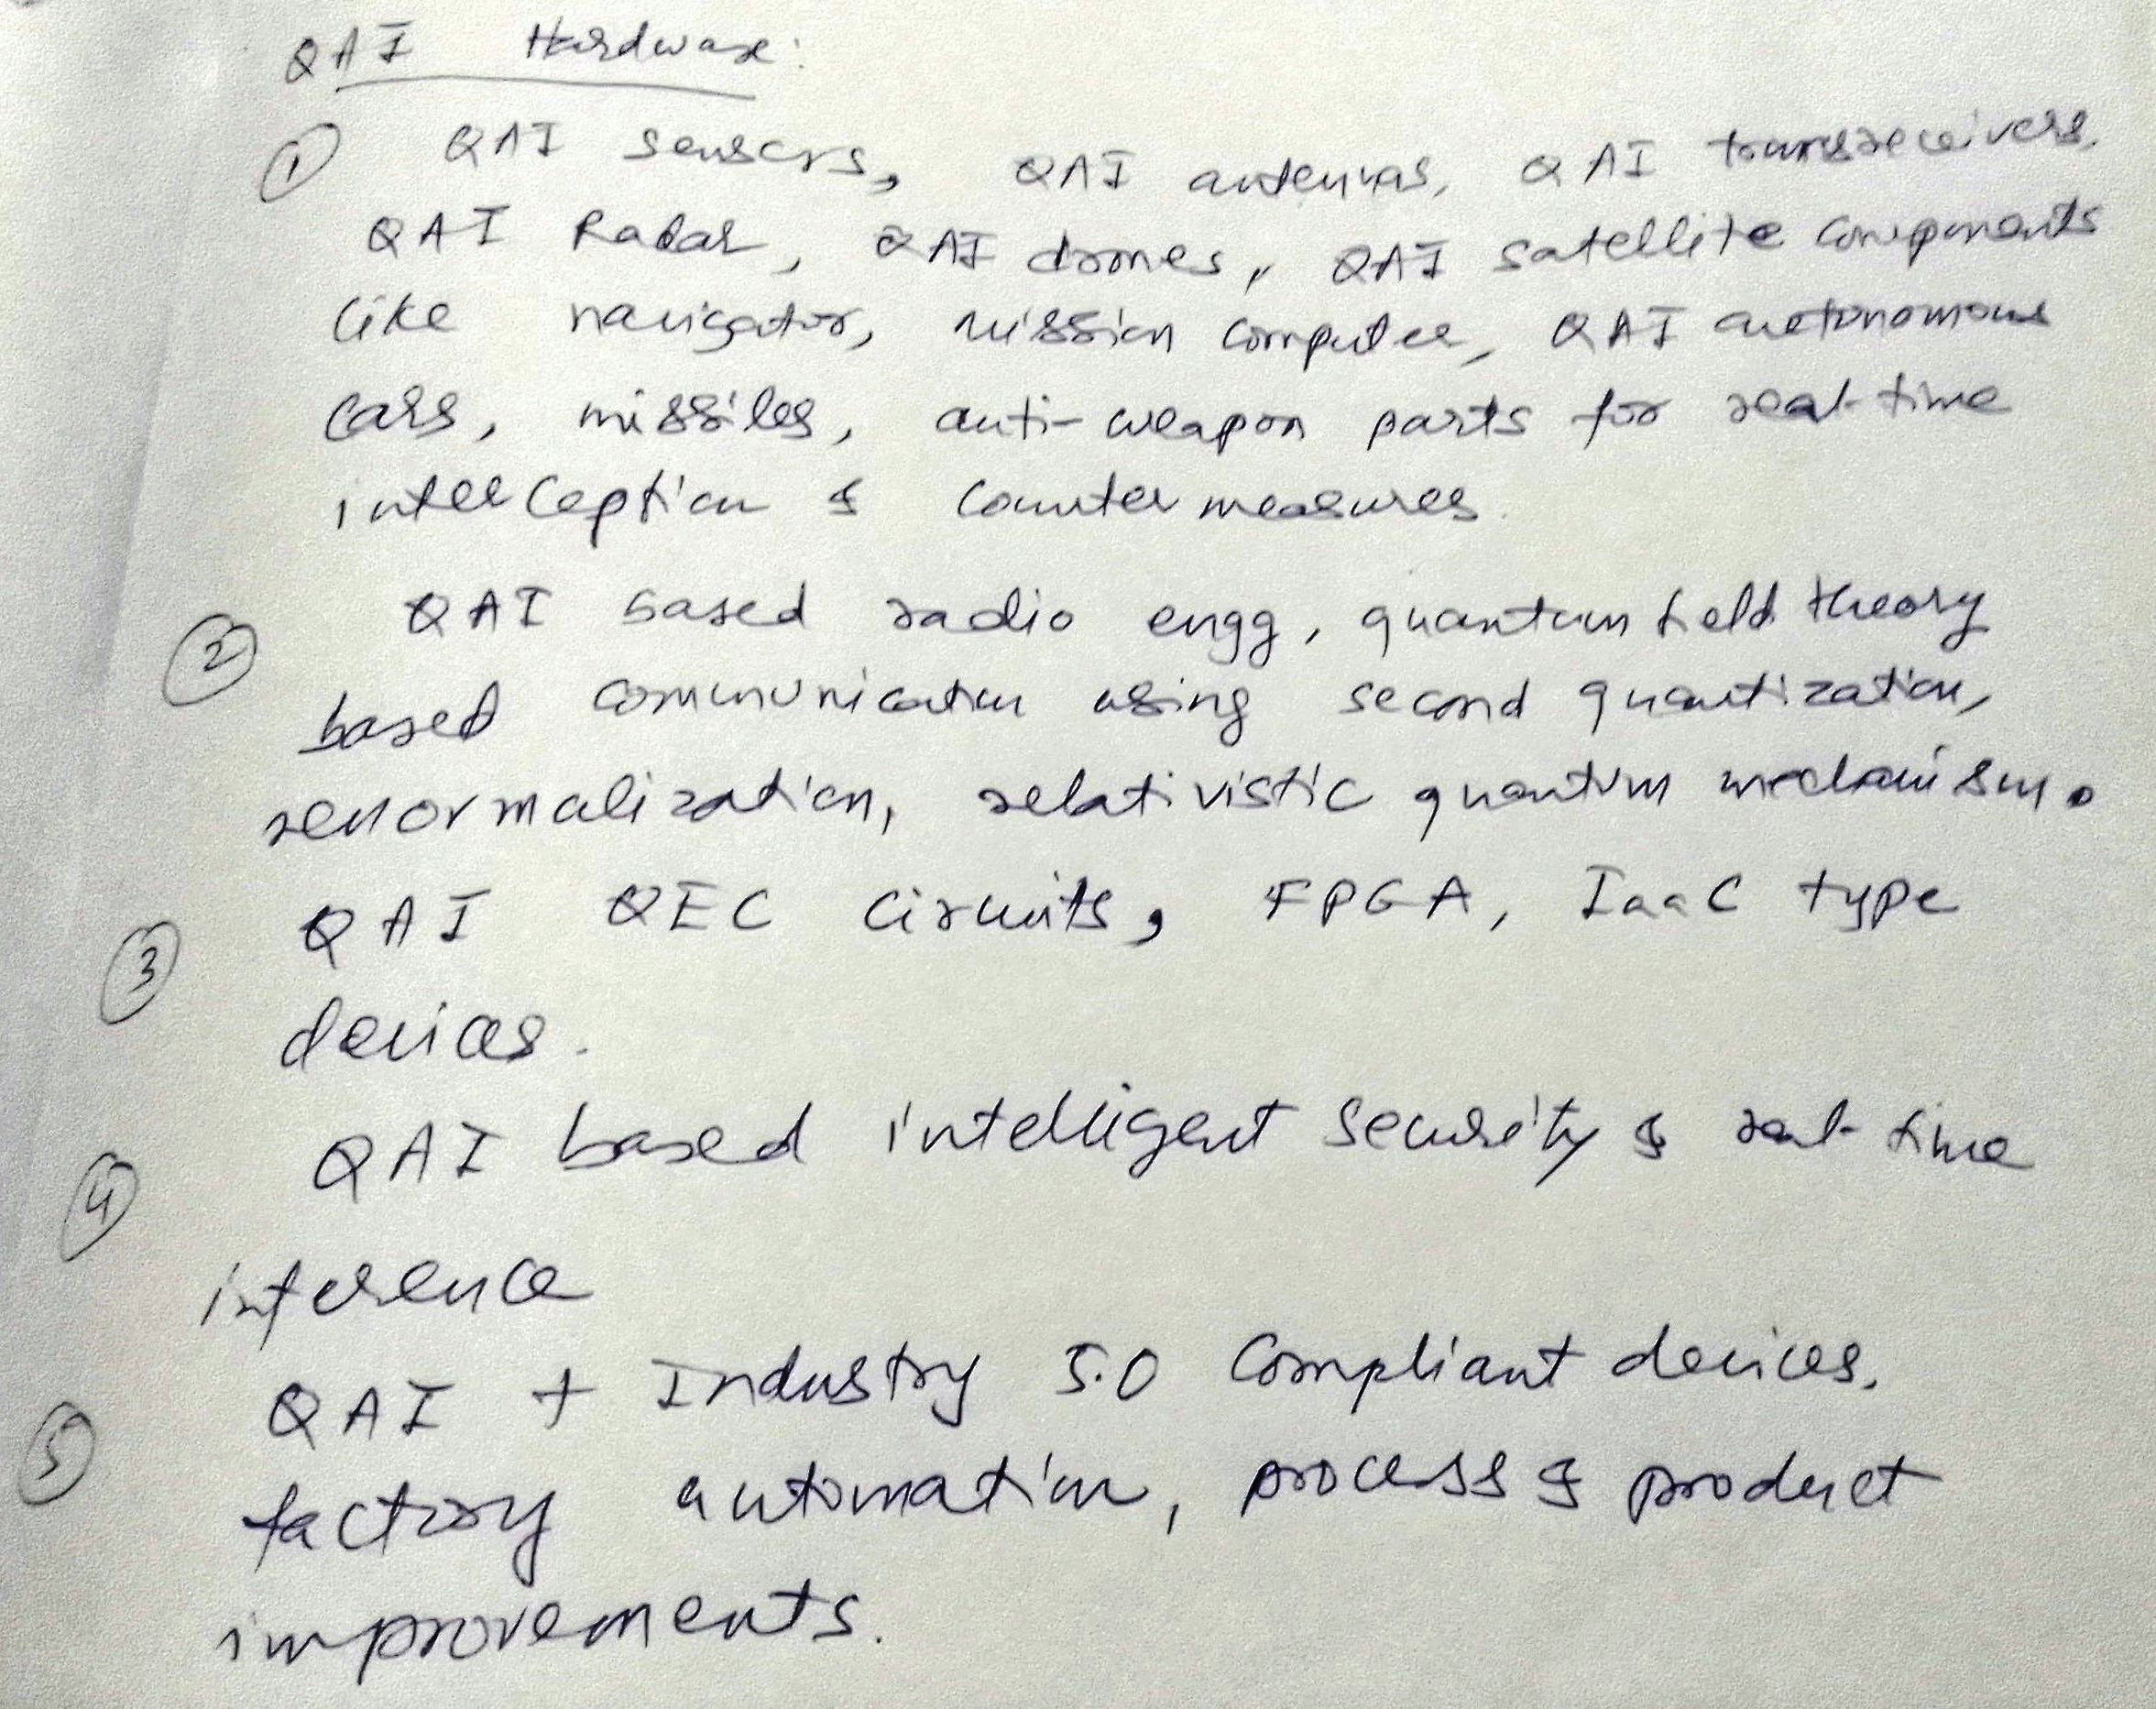 QAI Hardware:
① QAI sensors, QAI antennas, QAI transreceivers.
QAI Radar, QAI drones, QAI satellite components
like navigator, mission computer, QAI autonomous
cars, missiles, anti-weapon parts for real-time
interception & counter measures.
② QAI based radio engg, quantum field theory
based communication using second quantization,
renormalization, relativistic quantum mechanism.
③ QAI QEC circuits, FPGA, IaaC type
devices.
④ QAI based intelligent security & real-time
inference
⑤ QAI + Industry 5.0 compliant devices.
factory automation, process & product
improvements.